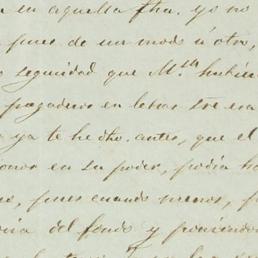 en aquella fha. yo no
pues de un modo ú otro,
seguridad que M.
pagaderos en letras sre esa
ya te he dho. antes, que el
en su poder, podia
pues cuando menos,
del fondo y poniendo